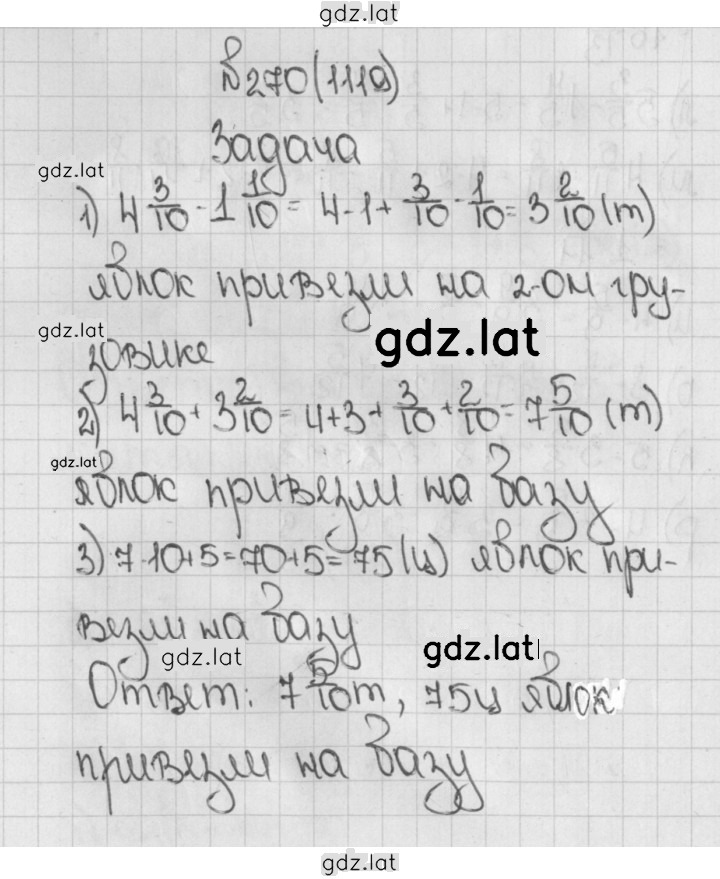 gdz.lat
№270(1110)
Задача
gdz.lat
1) 4 3/10 - 1 1/10 = 4-1+ 3/10 - 1/10 = 3 2/10 (т)
яблок привезли на 2-ом гру-
gdz.lat
gdz.lat
зовике
2) 4 3/10 + 3 2/10 = 4+3+ 3/10 + 2/10 = 7 5/10 (т)
gdz.lat
яблок привезли на базу
3) 7·10+5=70+5=75(ц) яблок при-
везли на базу
gdz.lat
gdz.lat
Ответ: 7 5/10т, 75ц яблок
привезли на базу
gdz.lat